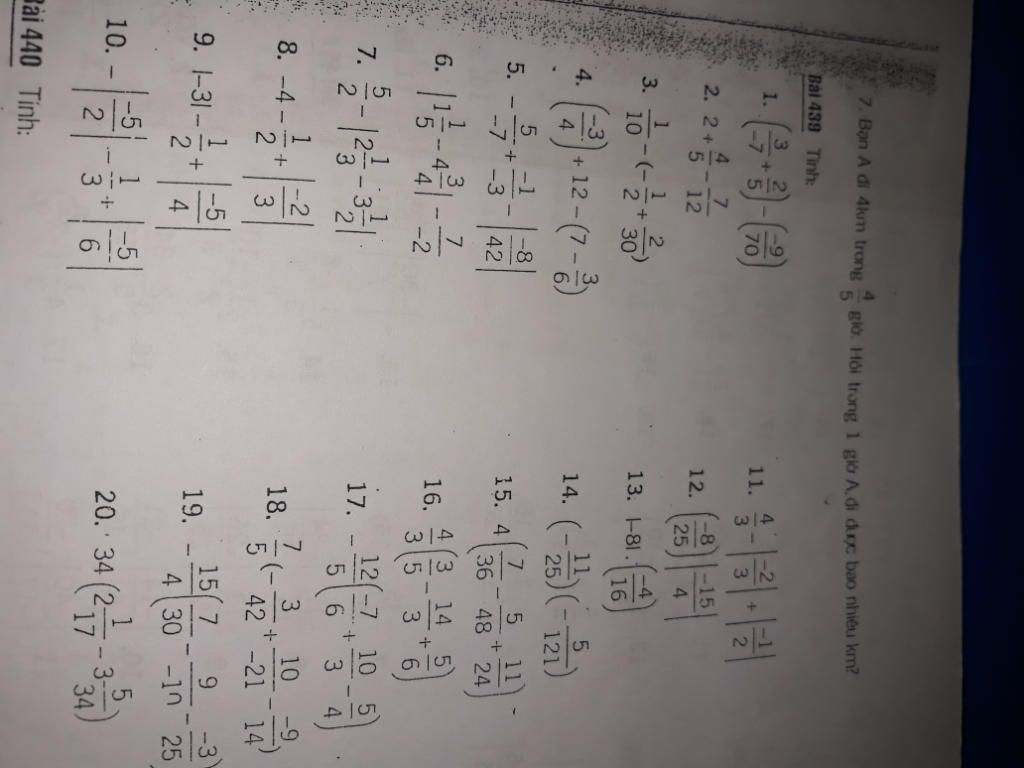 7. Bạn A đi 4km trong 4/5 giờ. Hỏi trong 1 giờ A đi được bao nhiêu km?
Bài 439 Tính:
1. (3/-7 + 2/5) - (-9/70)
2. 2 + 4/5 - 7/12
3. 1/10 - (-1/2 + 2/30)
4. (-3/4) + 12 - (7 - 3/6)
5. - 5/-7 + -1/-3 - |-8/42|
6. |1 1/5 - 4 3/4| - 7/-2
7. 5/2 - |2 1/3 - 3 1/2|
8. -4 - 1/2 + |-2/3|
9. |-3| - 1/2 + |-5/4|
10. - |-5/2| - 1/3 + |-5/6|
11. 4/3 - |-2/3| + |-1/2|
12. (-8/25) |-15/4|
13. |-8|. (-4/16)
14. (- 11/25)(- 5/121)
15. 4(7/36 - 5/48 + 11/24)
16. 4/3(3/5 - 14/3 + 5/6)
17. - 12/5(-7/6 + 10/3 - 5/4)
18. 7/5(- 3/42 + 10/-21 - -9/14)
19. - 15/4(7/30 - 9/-10 - -3/25)
20. 34(2 1/17 - 3 5/34)
Bài 440 Tính: